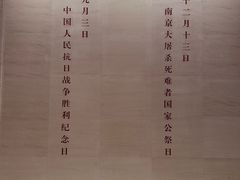 十二月十三日
南京大屠杀死难者国家公祭日
九月三日
中国人民抗日战争胜利纪念日